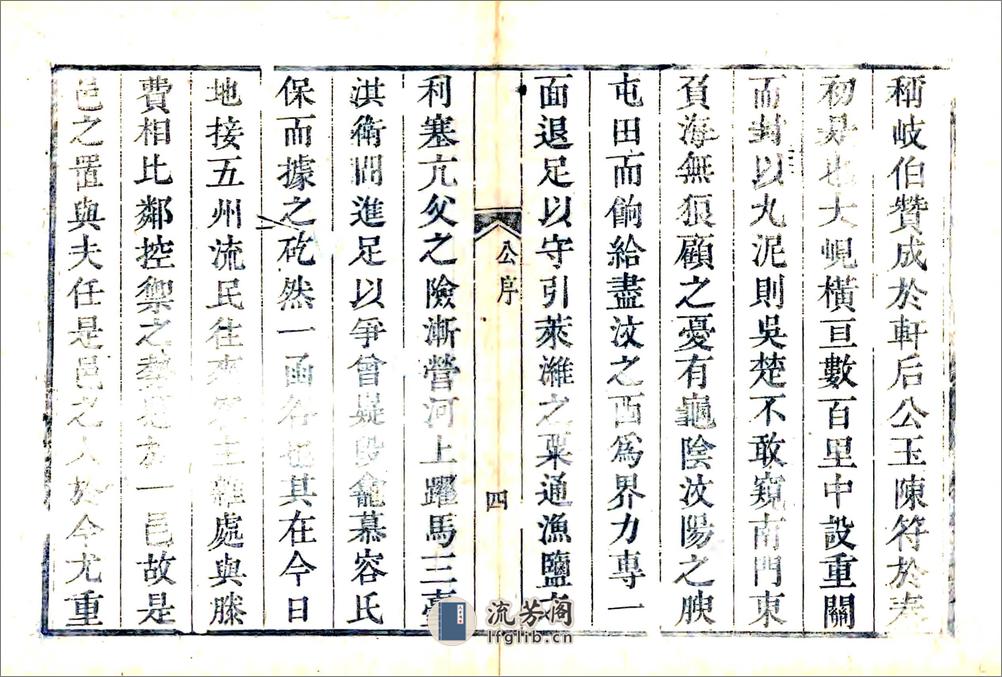 稱岐伯贊成於軒后公玉陳符於
初是也大峴橫亘數百里中設重關
而封以丸泥則吳楚不敢窺南門東
負海無狼顧之憂有龜陰汶陽之腴
屯田而餉給盡汶之西爲界力專一
面退足以守引萊濰之粟通漁鹽
公序
四
利塞亢父之險漸營河上躍馬三臺
洪衛間進足以爭曾嶷段龕慕容氏
保而據之矻然一函谷也其在今日
地接五州流民往來客主雜處與滕
費相比鄰控禦之勢一邑故是
邑之置與夫任是邑之人於今尤重
流芳阁
lfglib.cn